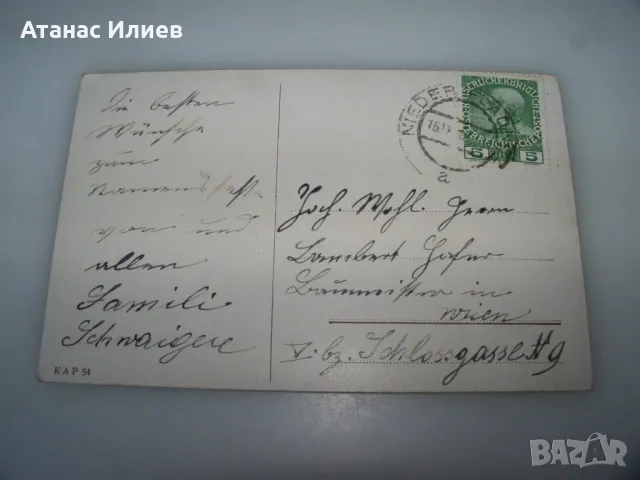 Атанас Илиев
Die besten
Wünsche
zum
Namensfeste
von uns
allen
Famili
Schwaiger
KAP 54
NIEDER
a
5 5
Hoch. Wohl. Herrn
Lambert Hofer
Baumeister in
Wien
V. bz. Schlossgasse N 9
BAZAR
bg